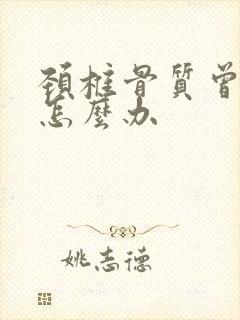 頸椎骨質曾
怎麼办
姚志德